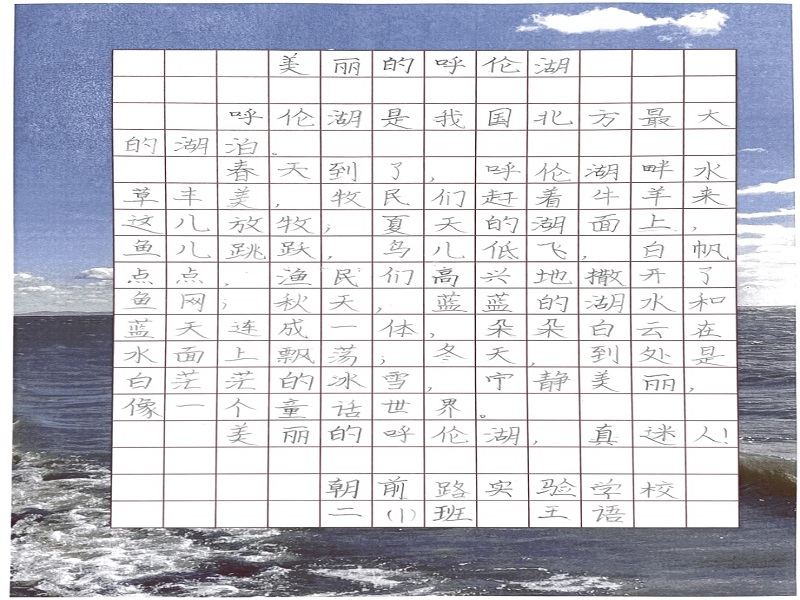 美丽的呼伦湖
呼伦湖是我国北方最大
的湖泊。
春天到了，呼伦湖畔水
草丰美，牧民们赶着牛羊来
这儿放牧；夏天的湖面上，
鱼儿跳跃，鸟儿低飞，白帆
点点，渔民们高兴地撒开了
鱼网；秋天，蓝蓝的湖水和
蓝天连成一体，朵朵白云在
水面上飘荡；冬天，到处是
白茫茫的冰雪，宁静美丽，
像一个童话世界。
美丽的呼伦湖，真迷人！
朝前路实验学校
二（1）班 王语